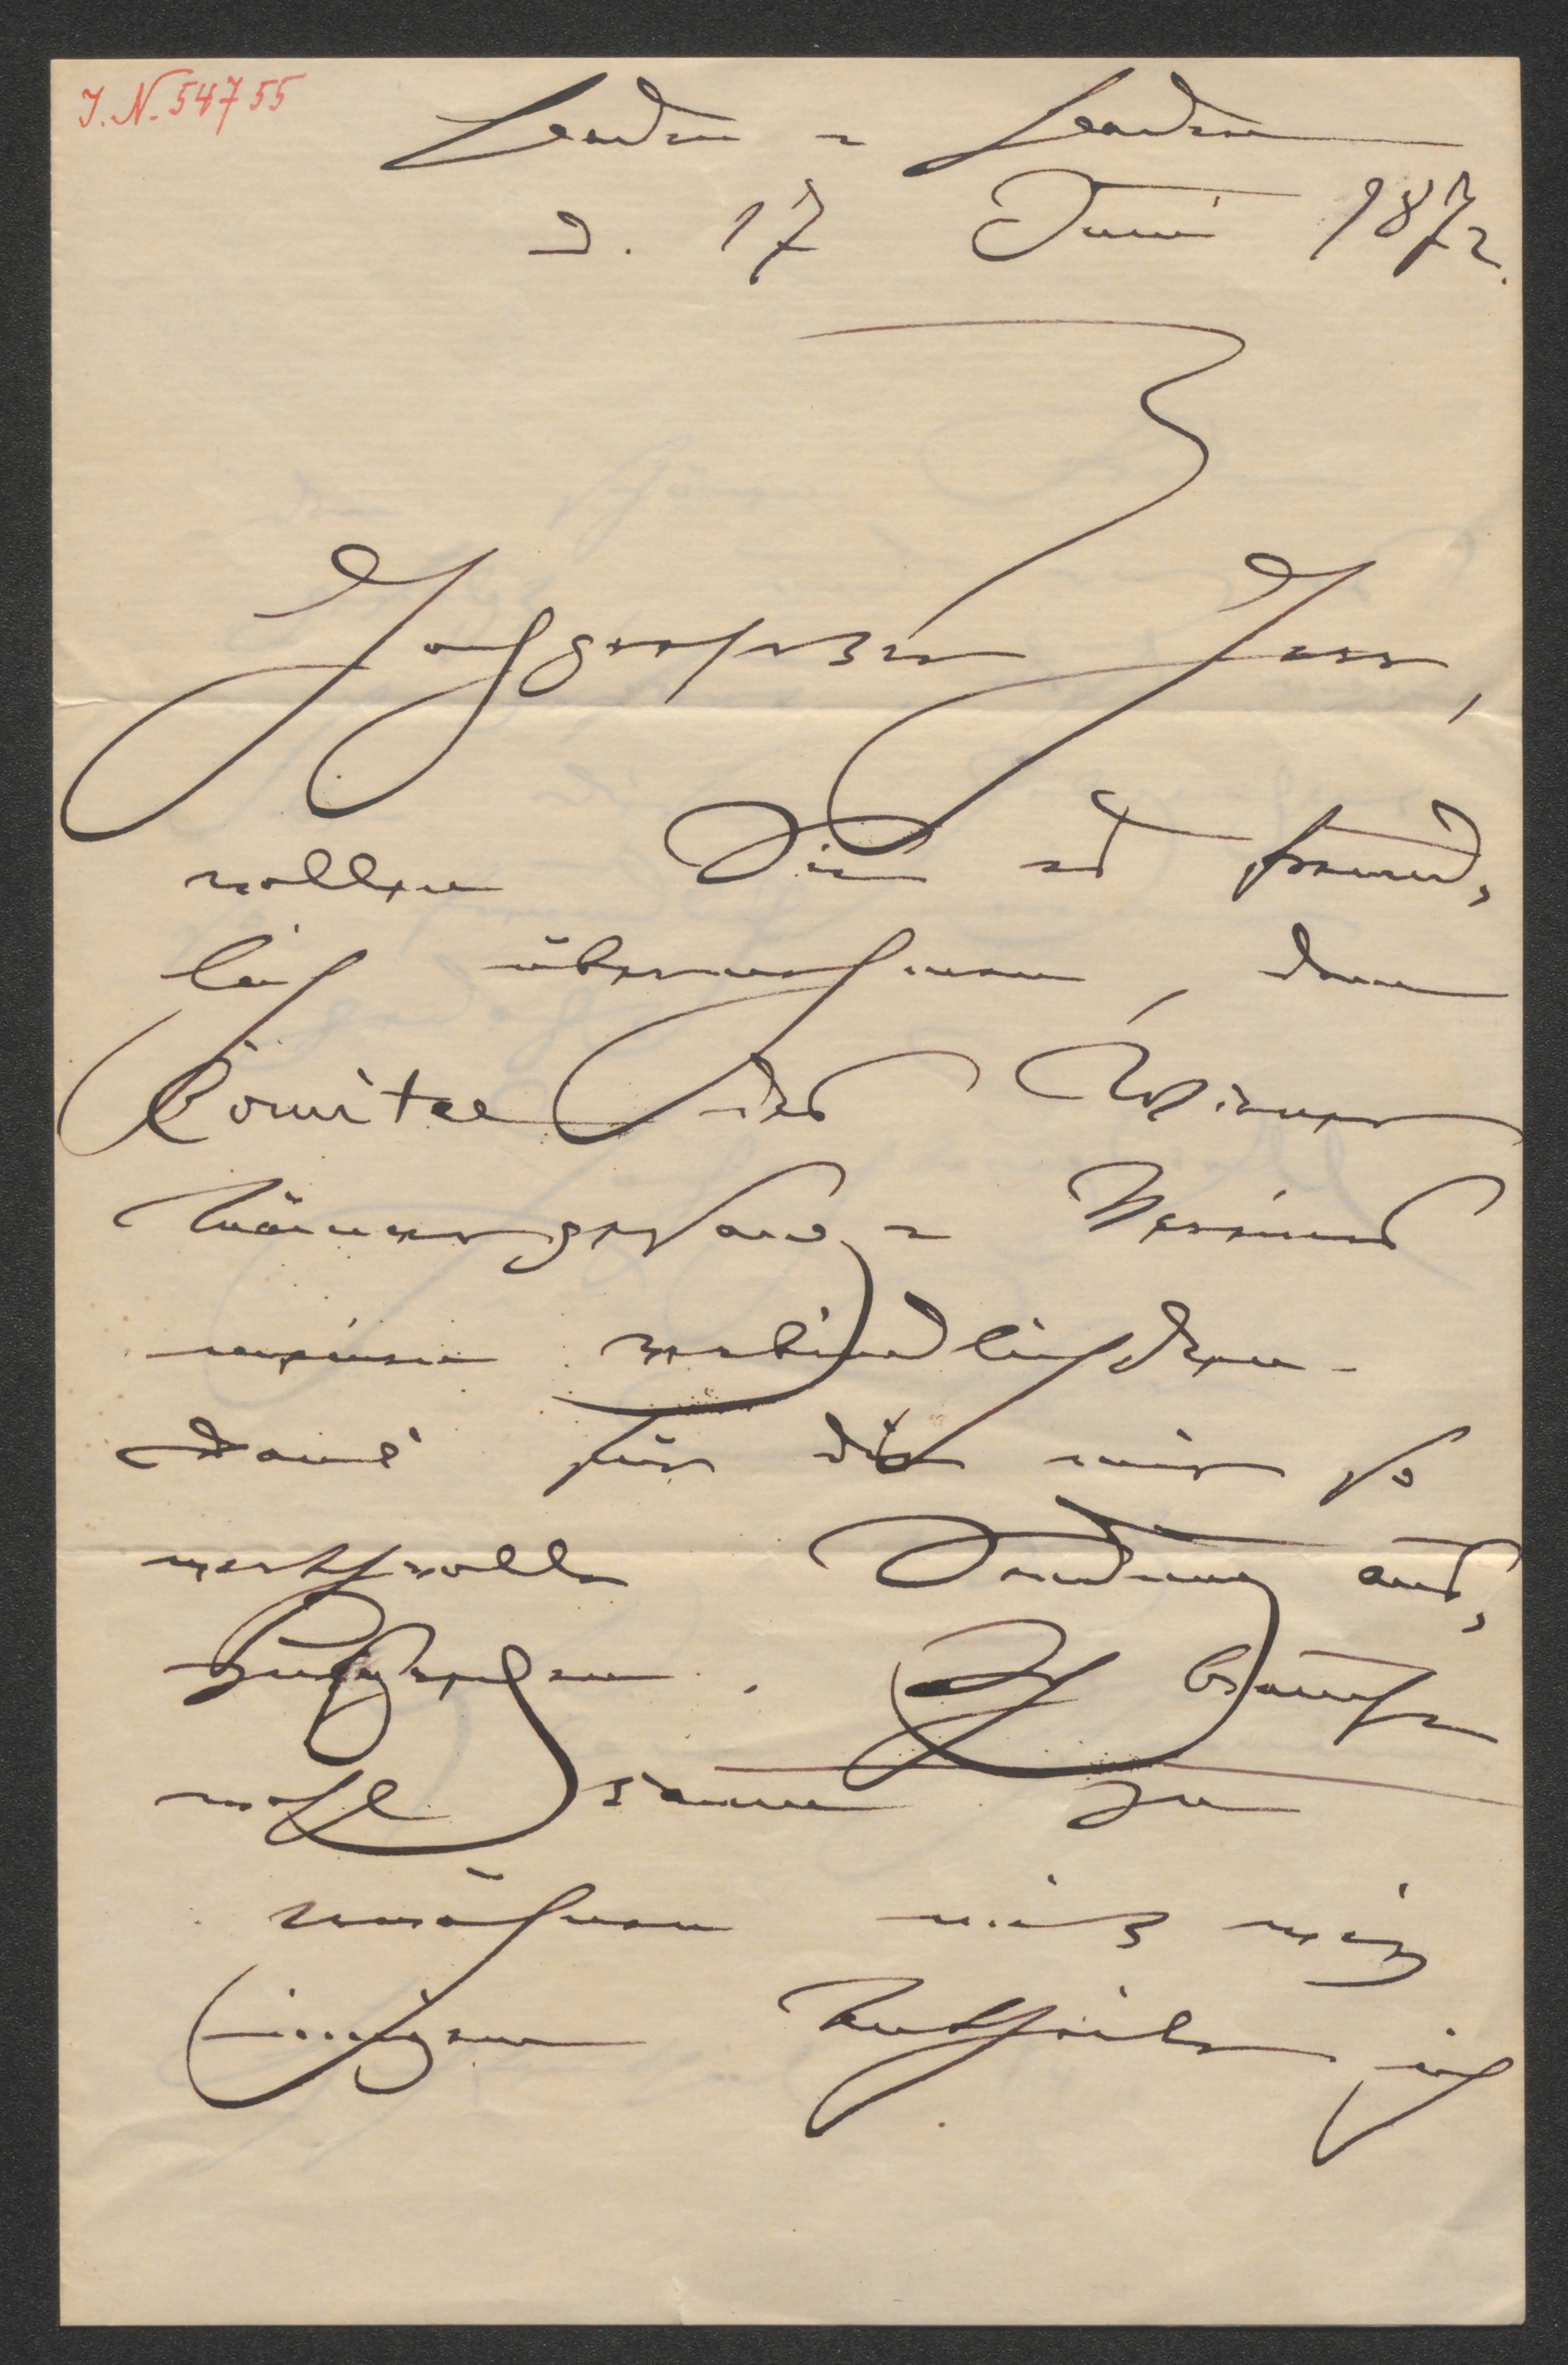 I. N. 54755
Baden - Baden
d. 17 Juni 1872.
Hochgeehrter Herr,
wollen Sie es freund-
lich übernehmen, dem
Comitee des Wiener
Männergesang-Vereines
meinen verbindlichsten
Dank für die mir so
werthvolle Sendung aus-
zusprechen. Ich brauche
wohl kaum zu
erwähnen mit welch
innigem Antheile ich